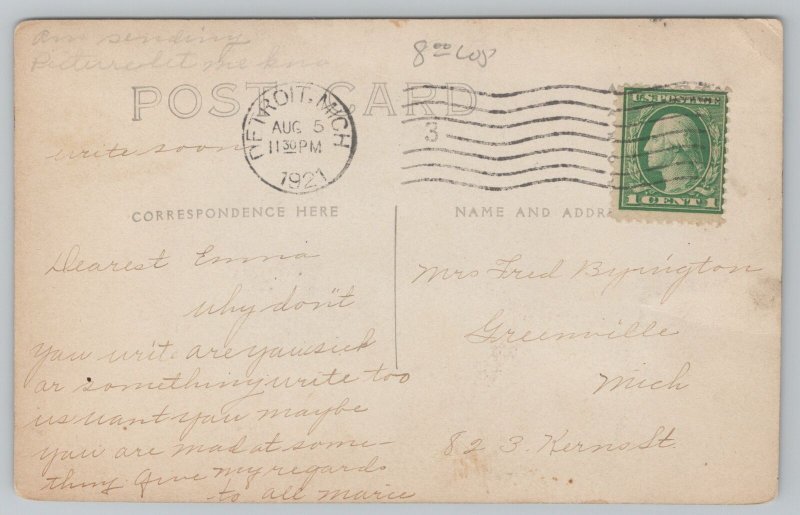 am sending
8⁰⁰
POST CARD
DETROIT, MICH
AUG 5
11 30 PM
1921
3
U.S. POSTAGE
1 CENT 1
write soon
CORRESPONDENCE HERE
NAME AND ADDR
Dearest Emma
why don't
you write are you sick
or something write too
us want you maybe
you are mad at some-
thing Give my regards
to all Marie
Mrs Fred Byington
Greenville
Mich
823. Kerns St.